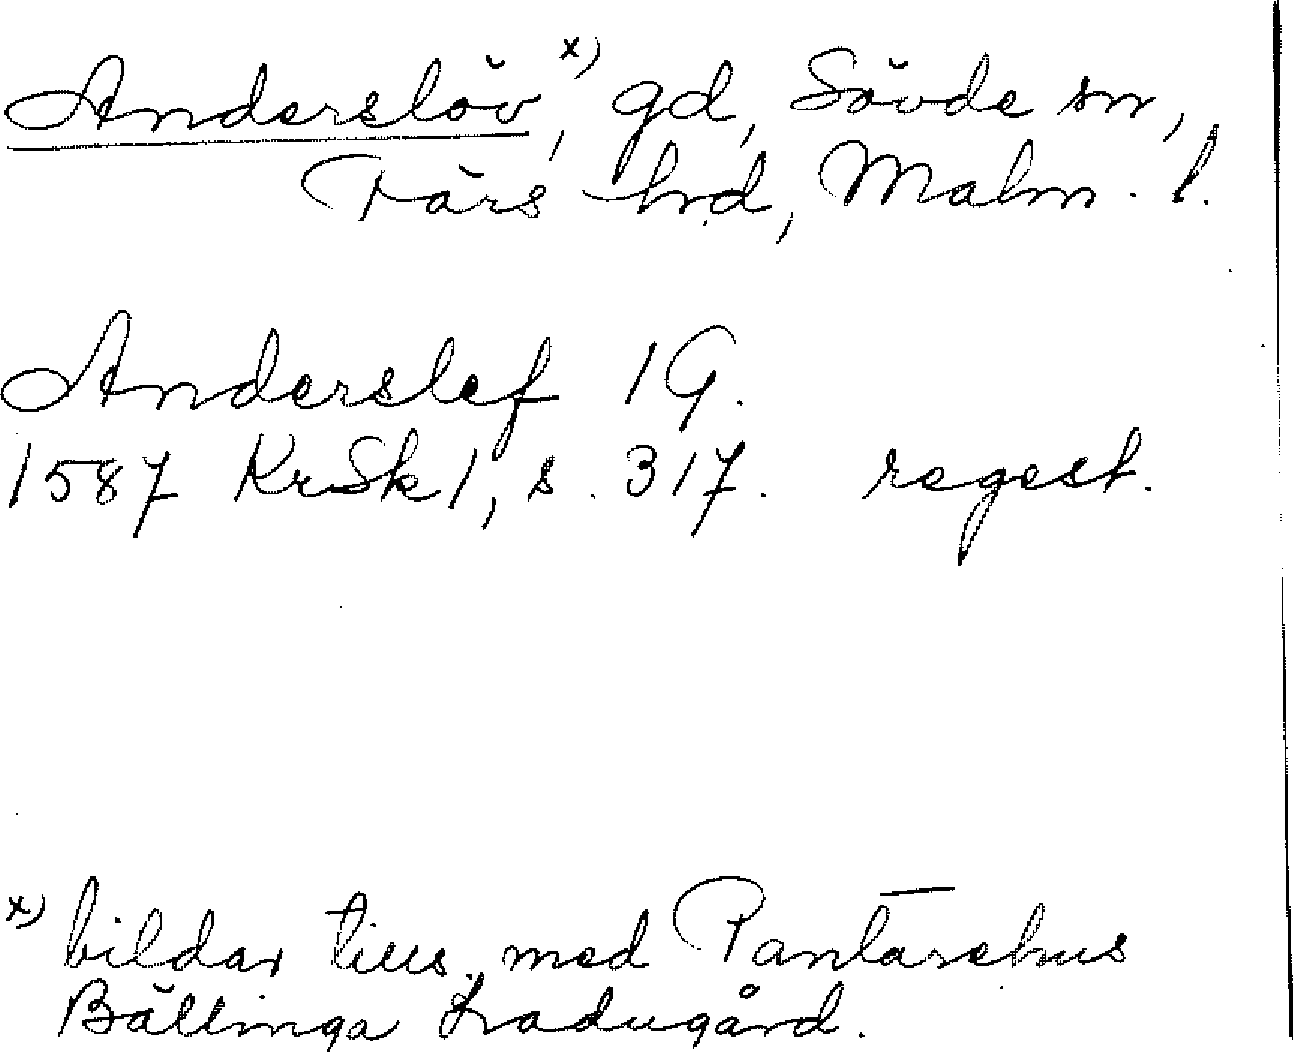 Anderslöv x), gd, Sövde sn,
Färs hd, Malm. l.
Anderslef 1 G.
1587 KrSk 1, s. 317. regest.
x) bildar tills. med Pantarehus
Bällinga Ladugård.